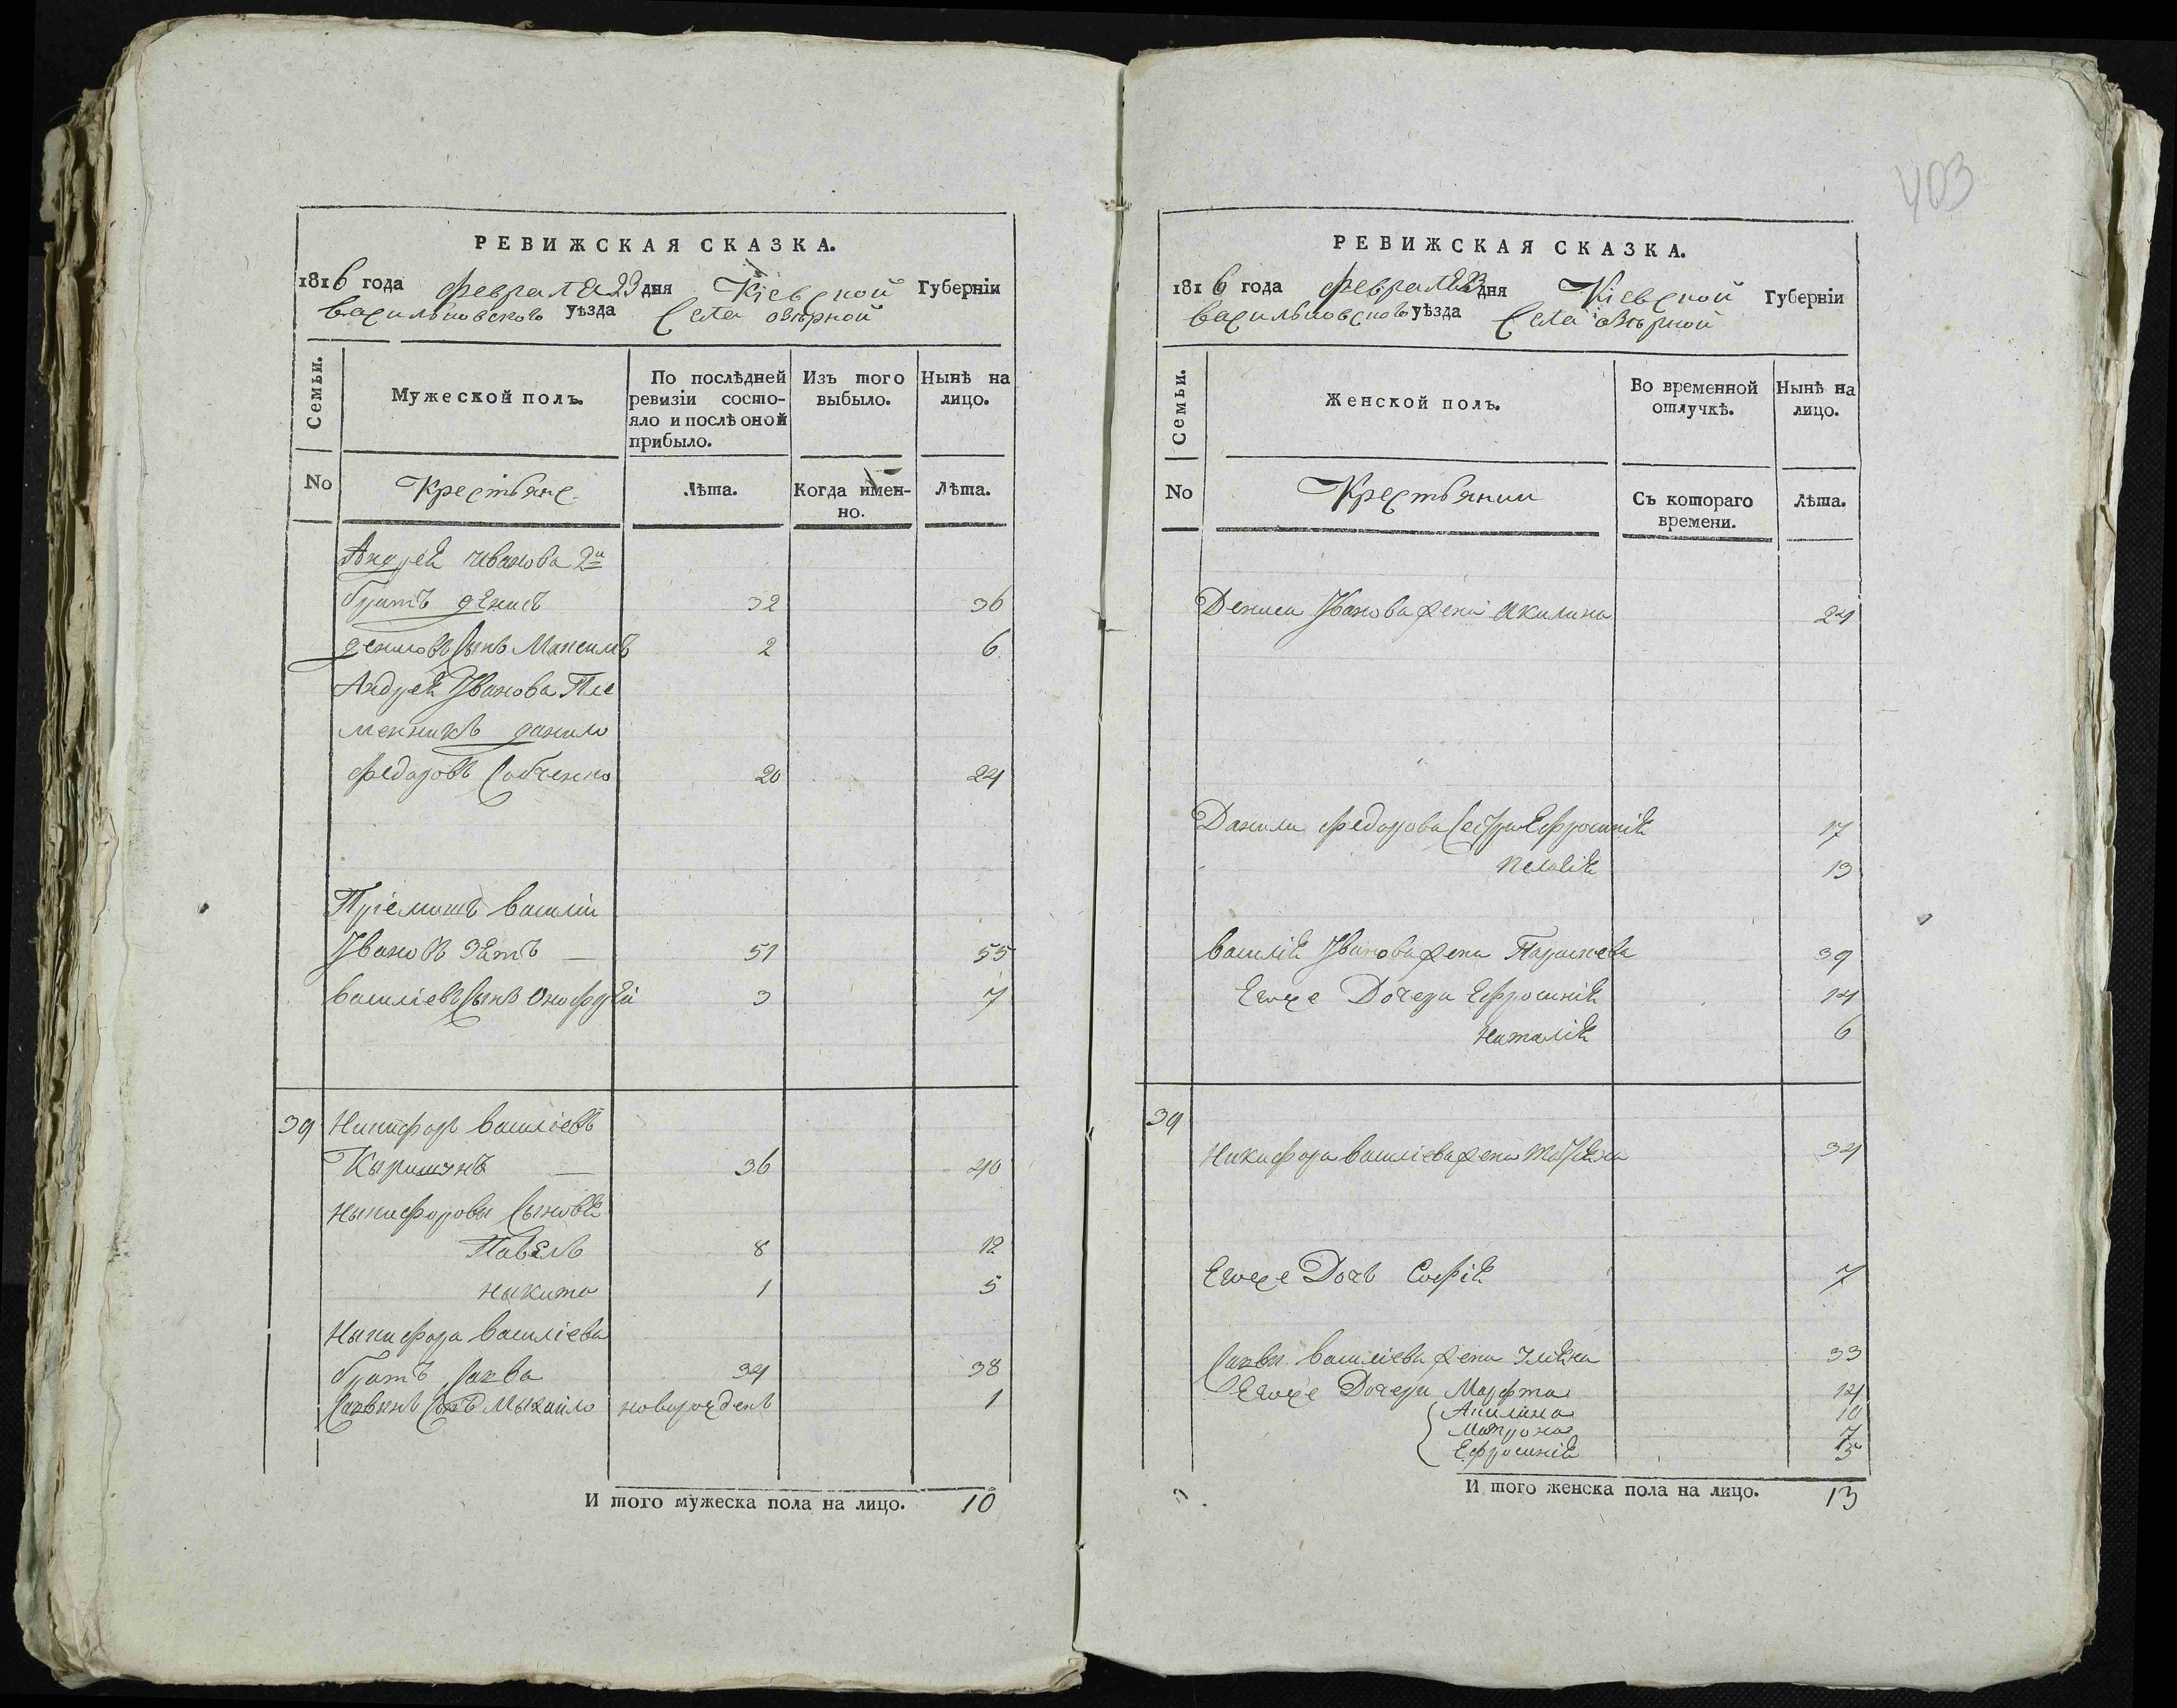 403
РЕВИЖСКАЯ СКАЗКА.
1816 года февраля 23 дня Кіевской Губерніи
васильковского уѣзда Села озѣрной
Семьи.
Мужеской полъ.
По послѣдней ревизіи состо-
яло и послѣ оной
прибыло.
Изъ того
выбыло.
Нынѣ на
лицо.
No
Крестьяне
Лѣта.
Когда имен-
но.
Лѣта.
Андрея иванова 2й
братъ денисъ 32 36
денисовъ Сынъ Максимъ 2 6
Андрея Иванова Пле
менникъ данило
федоровъ Собченко 20 24
Пріемышъ василій
Ивановъ зять — 51 55
василіевъ Сынъ Онофрѣй 3 7
39 Никифоръ василіевъ
— 36 40
Никифоровы Сыновя
Павелъ 8 12
никита 1 5
Никифора василіева
братъ Савва 34 38
Саввинъ Сынъ Михайло новорожденъ 1
И того мужеска пола на лицо. 10
РЕВИЖСКАЯ СКАЗКА.
1816 года февраля 23 дня Кіевской Губерніи
васильковского уѣзда Села озѣрной
Семьи.
Женской полъ.
Во временной
отлучкѣ.
Нынѣ на
лицо.
No
Крестьянки
Съ котораго
времени.
Лѣта.
Дениса Иванова жена Акилина 24
Данила федорова Сестра Ефросинія 17
Пелагія 13
василія Иванова жена Параскева 39
Егоже Дочери Ефросинія 14
Наталія 6
39
Никифора василіева жена Татіяна 34
Егоже Дочь Софія 7
Саввы василіева жена Уліяна 33
Егоже Дочери Марфта 14
Акилина 10
Матрона 7
Ефросинія 5
И того женска пола на лицо. 13